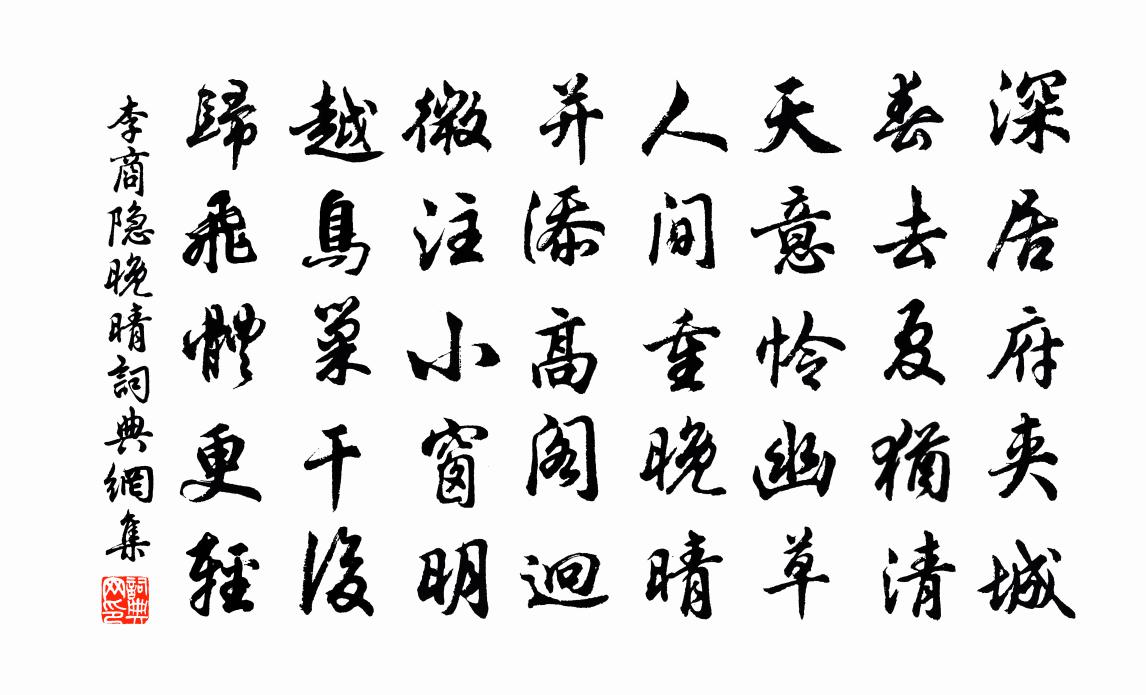 深居府夹城
春去夏猶清
天意怜幽草
人间重晚晴
并添高阁迥
微注小窗明
越鳥巢干後
歸飛體更輕
李商隐晚晴詞典網集
詞典网印